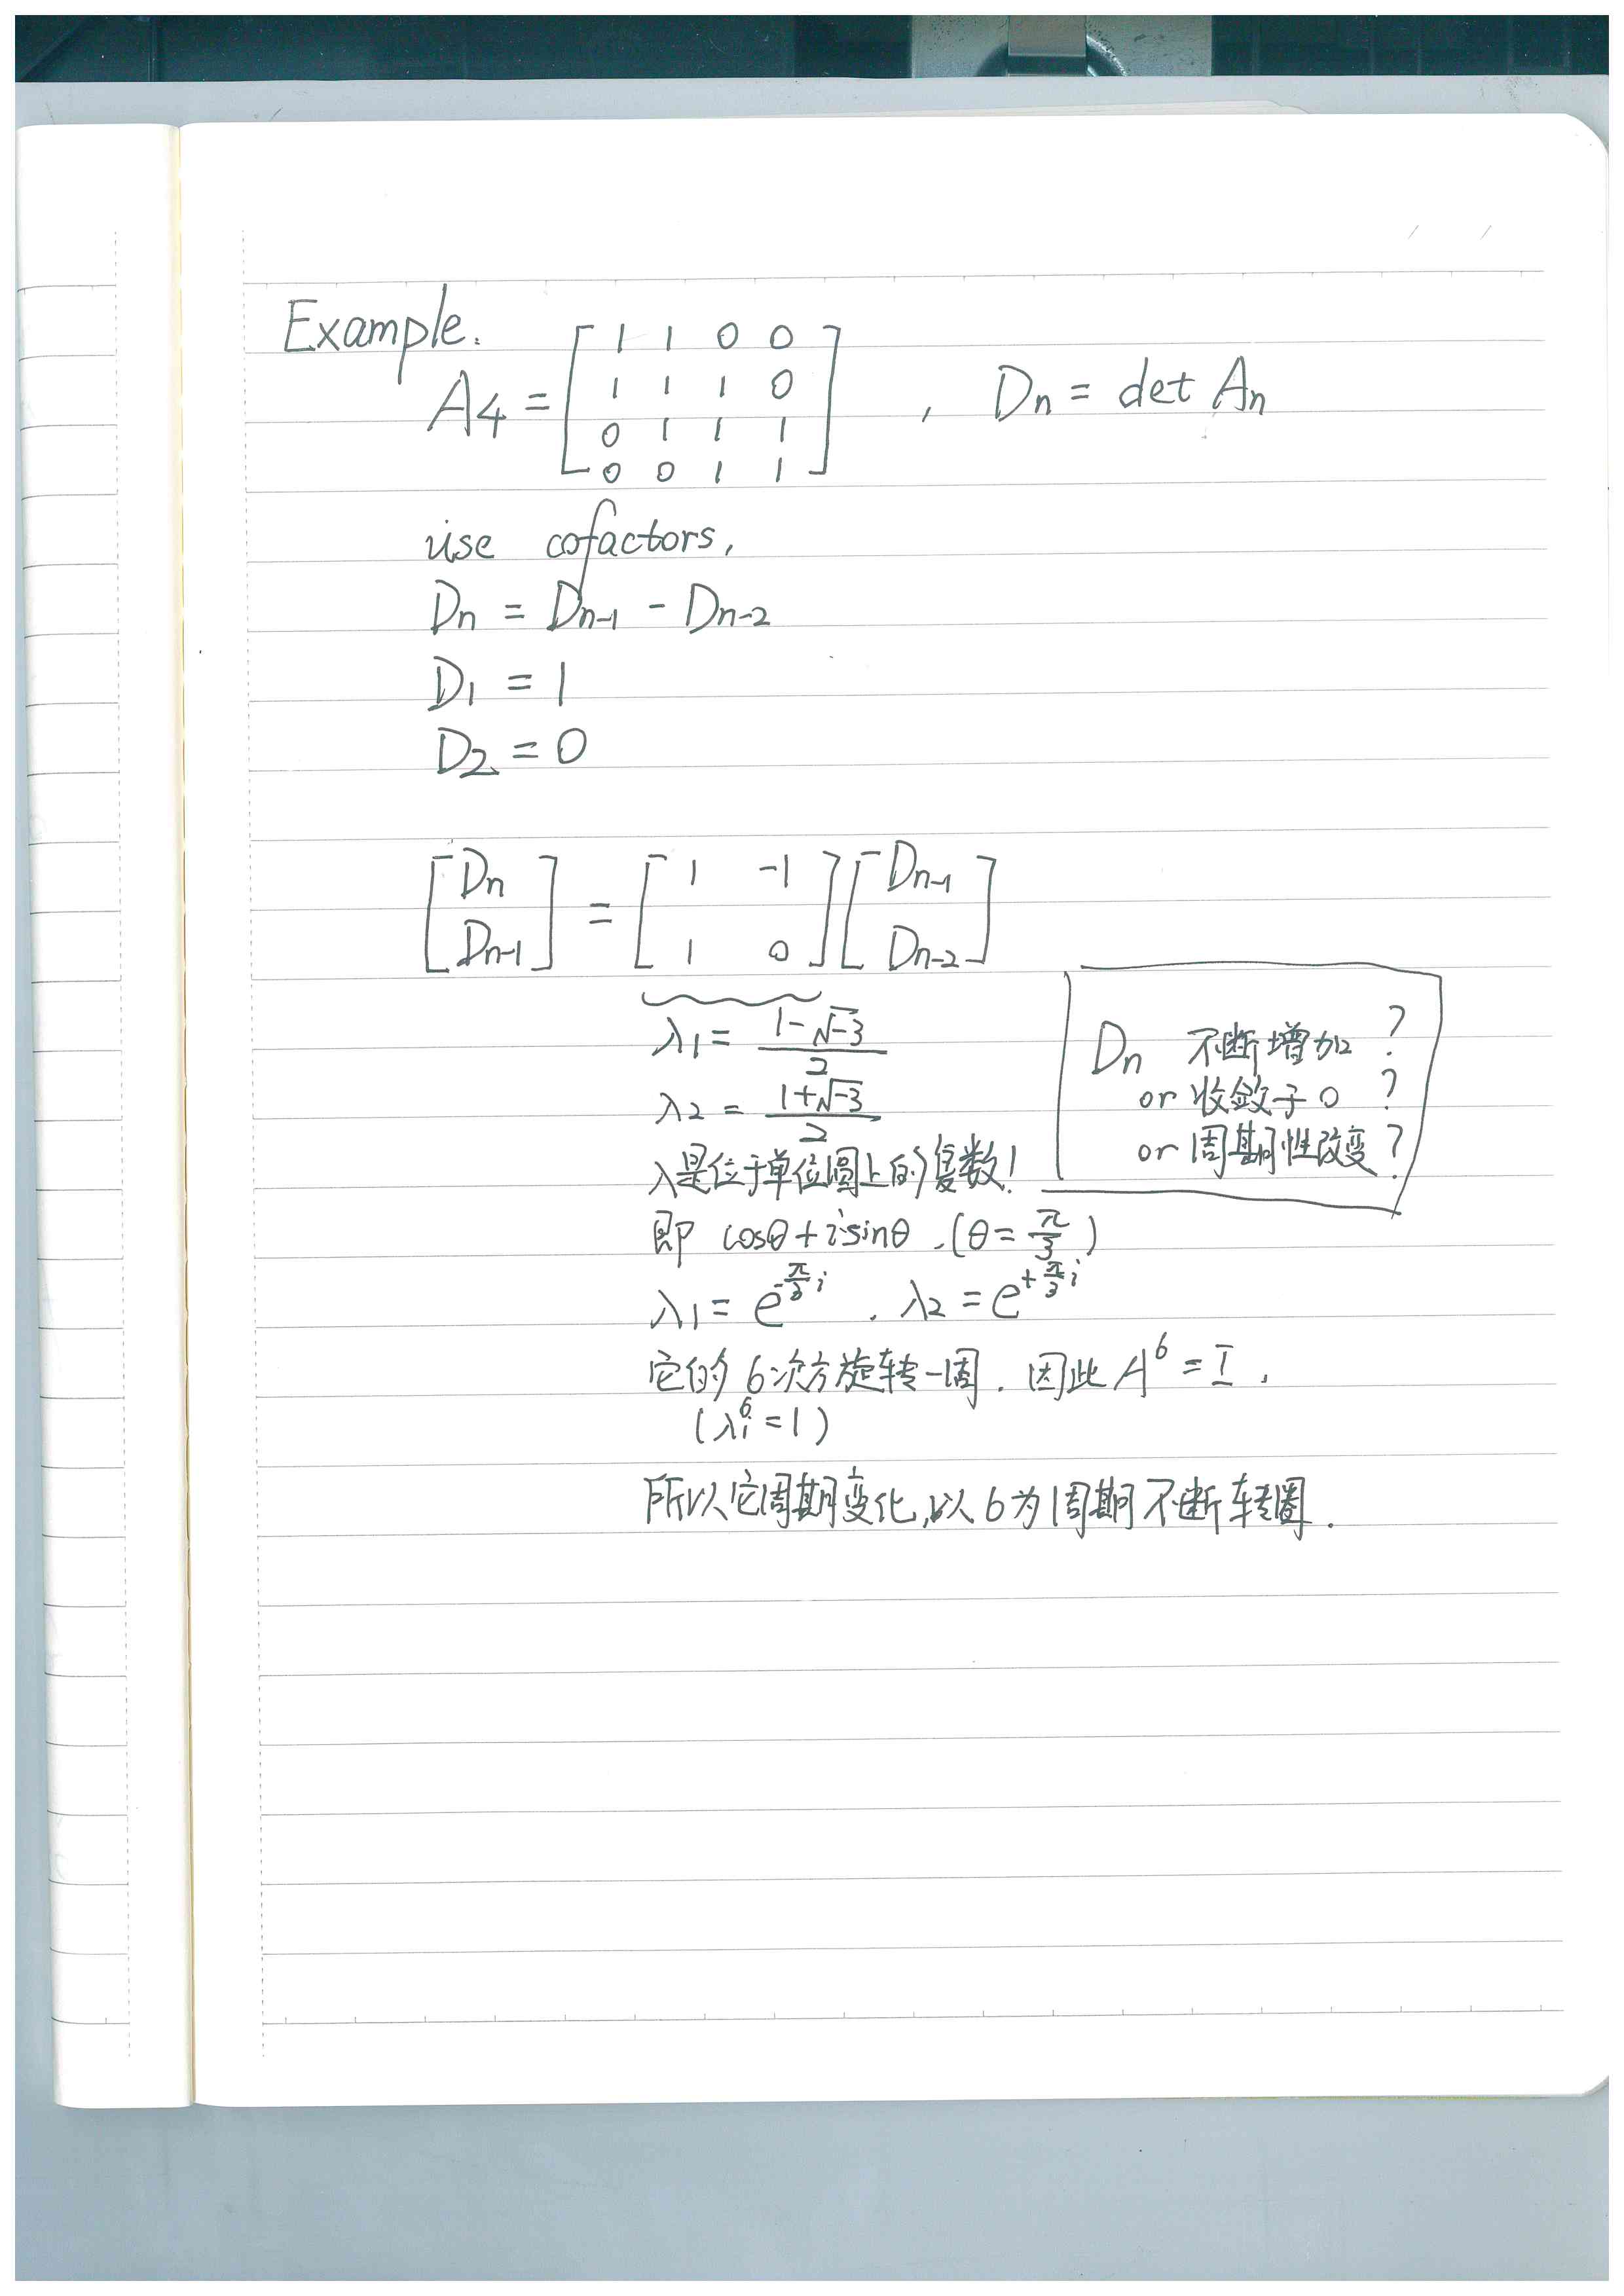 Example.
A4 = [ 1 1 0 0
1 1 1 0
0 1 1 1
0 0 1 1 ] , Dn = det An
use cofactors,
Dn = Dn-1 - Dn-2
D1 = 1
D2 = 0
[ Dn
Dn-1 ] = [ 1 -1
1 0 ] [ Dn-1
Dn-2 ]
λ1 = (1-√-3)/2
λ2 = (1+√-3)/2
λ是位于单位圆上的复数!
即 cosθ + i·sinθ .(θ = π/3)
λ1 = e^(-π/3 i) . λ2 = e^(+π/3 i)
它的 6次方旋转一周. 因此 A^6 = I .
(λi^6 = 1)
所以它周期变化,以 6 为周期不断转圈.
Dn 不断增加 ?
or 收敛于 0 ?
or 周期性改变 ?